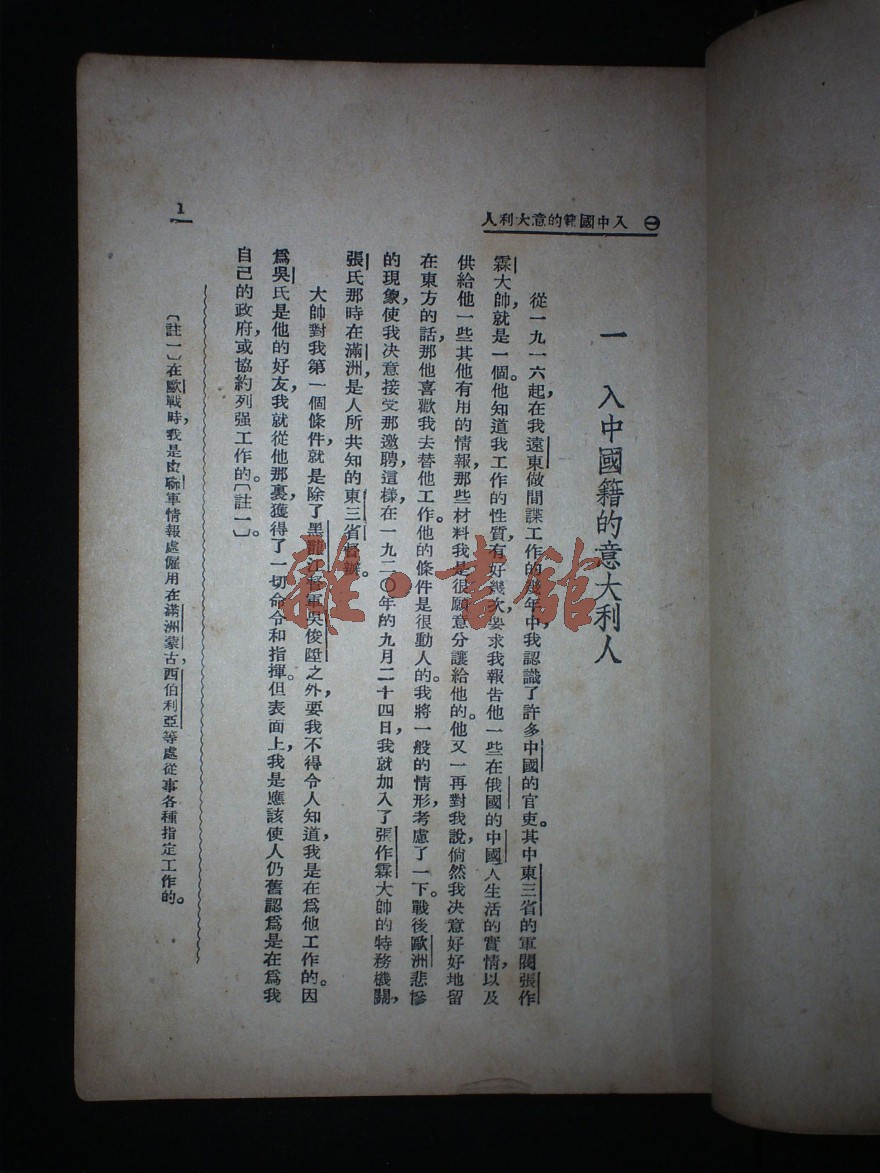 ㊀ 入中國籍的意大利人
一 入中國籍的意大利人
從一九一六起,在我遠東做間諜工作的幾年中,我認識了許多中國的官吏。其中東三省的軍閥張作
霖大帥,就是一個。他知道我工作的性質,有好幾次,要求我報告他一些在俄國的中國人生活的實情,以及
供給他一些其他有用的情報,那些材料我是很願意分讓給他的。他又一再對我說,倘然我決意好好地留
在東方的話,那他喜歡我去替他工作。他的條件是很動人的。我將一般的情形,考慮了一下。戰後歐洲悲慘
的現象,使我决意接受那邀聘,這樣,在一九二〇年的九月二十四日,我就加入了張作霖大帥的特務機關,
張氏那時在滿洲,是人所共知的東三省督辦。
大帥對我第一個條件,就是除了黑龍江督軍吳俊陞之外,要我不得令人知道,我是在爲他工作的。因
爲吳氏是他的好友,我就從他那裏獲得了一切命令和指揮。但表面上,我是應該使人仍舊認爲是在爲我
自己的政府,或協約列强工作的。〔註一〕。
〔註一〕在歐戰時,我是由聯軍情報處僱用在滿洲,蒙古,西伯利亞等處從事各種指定工作的。
1
雜·書館